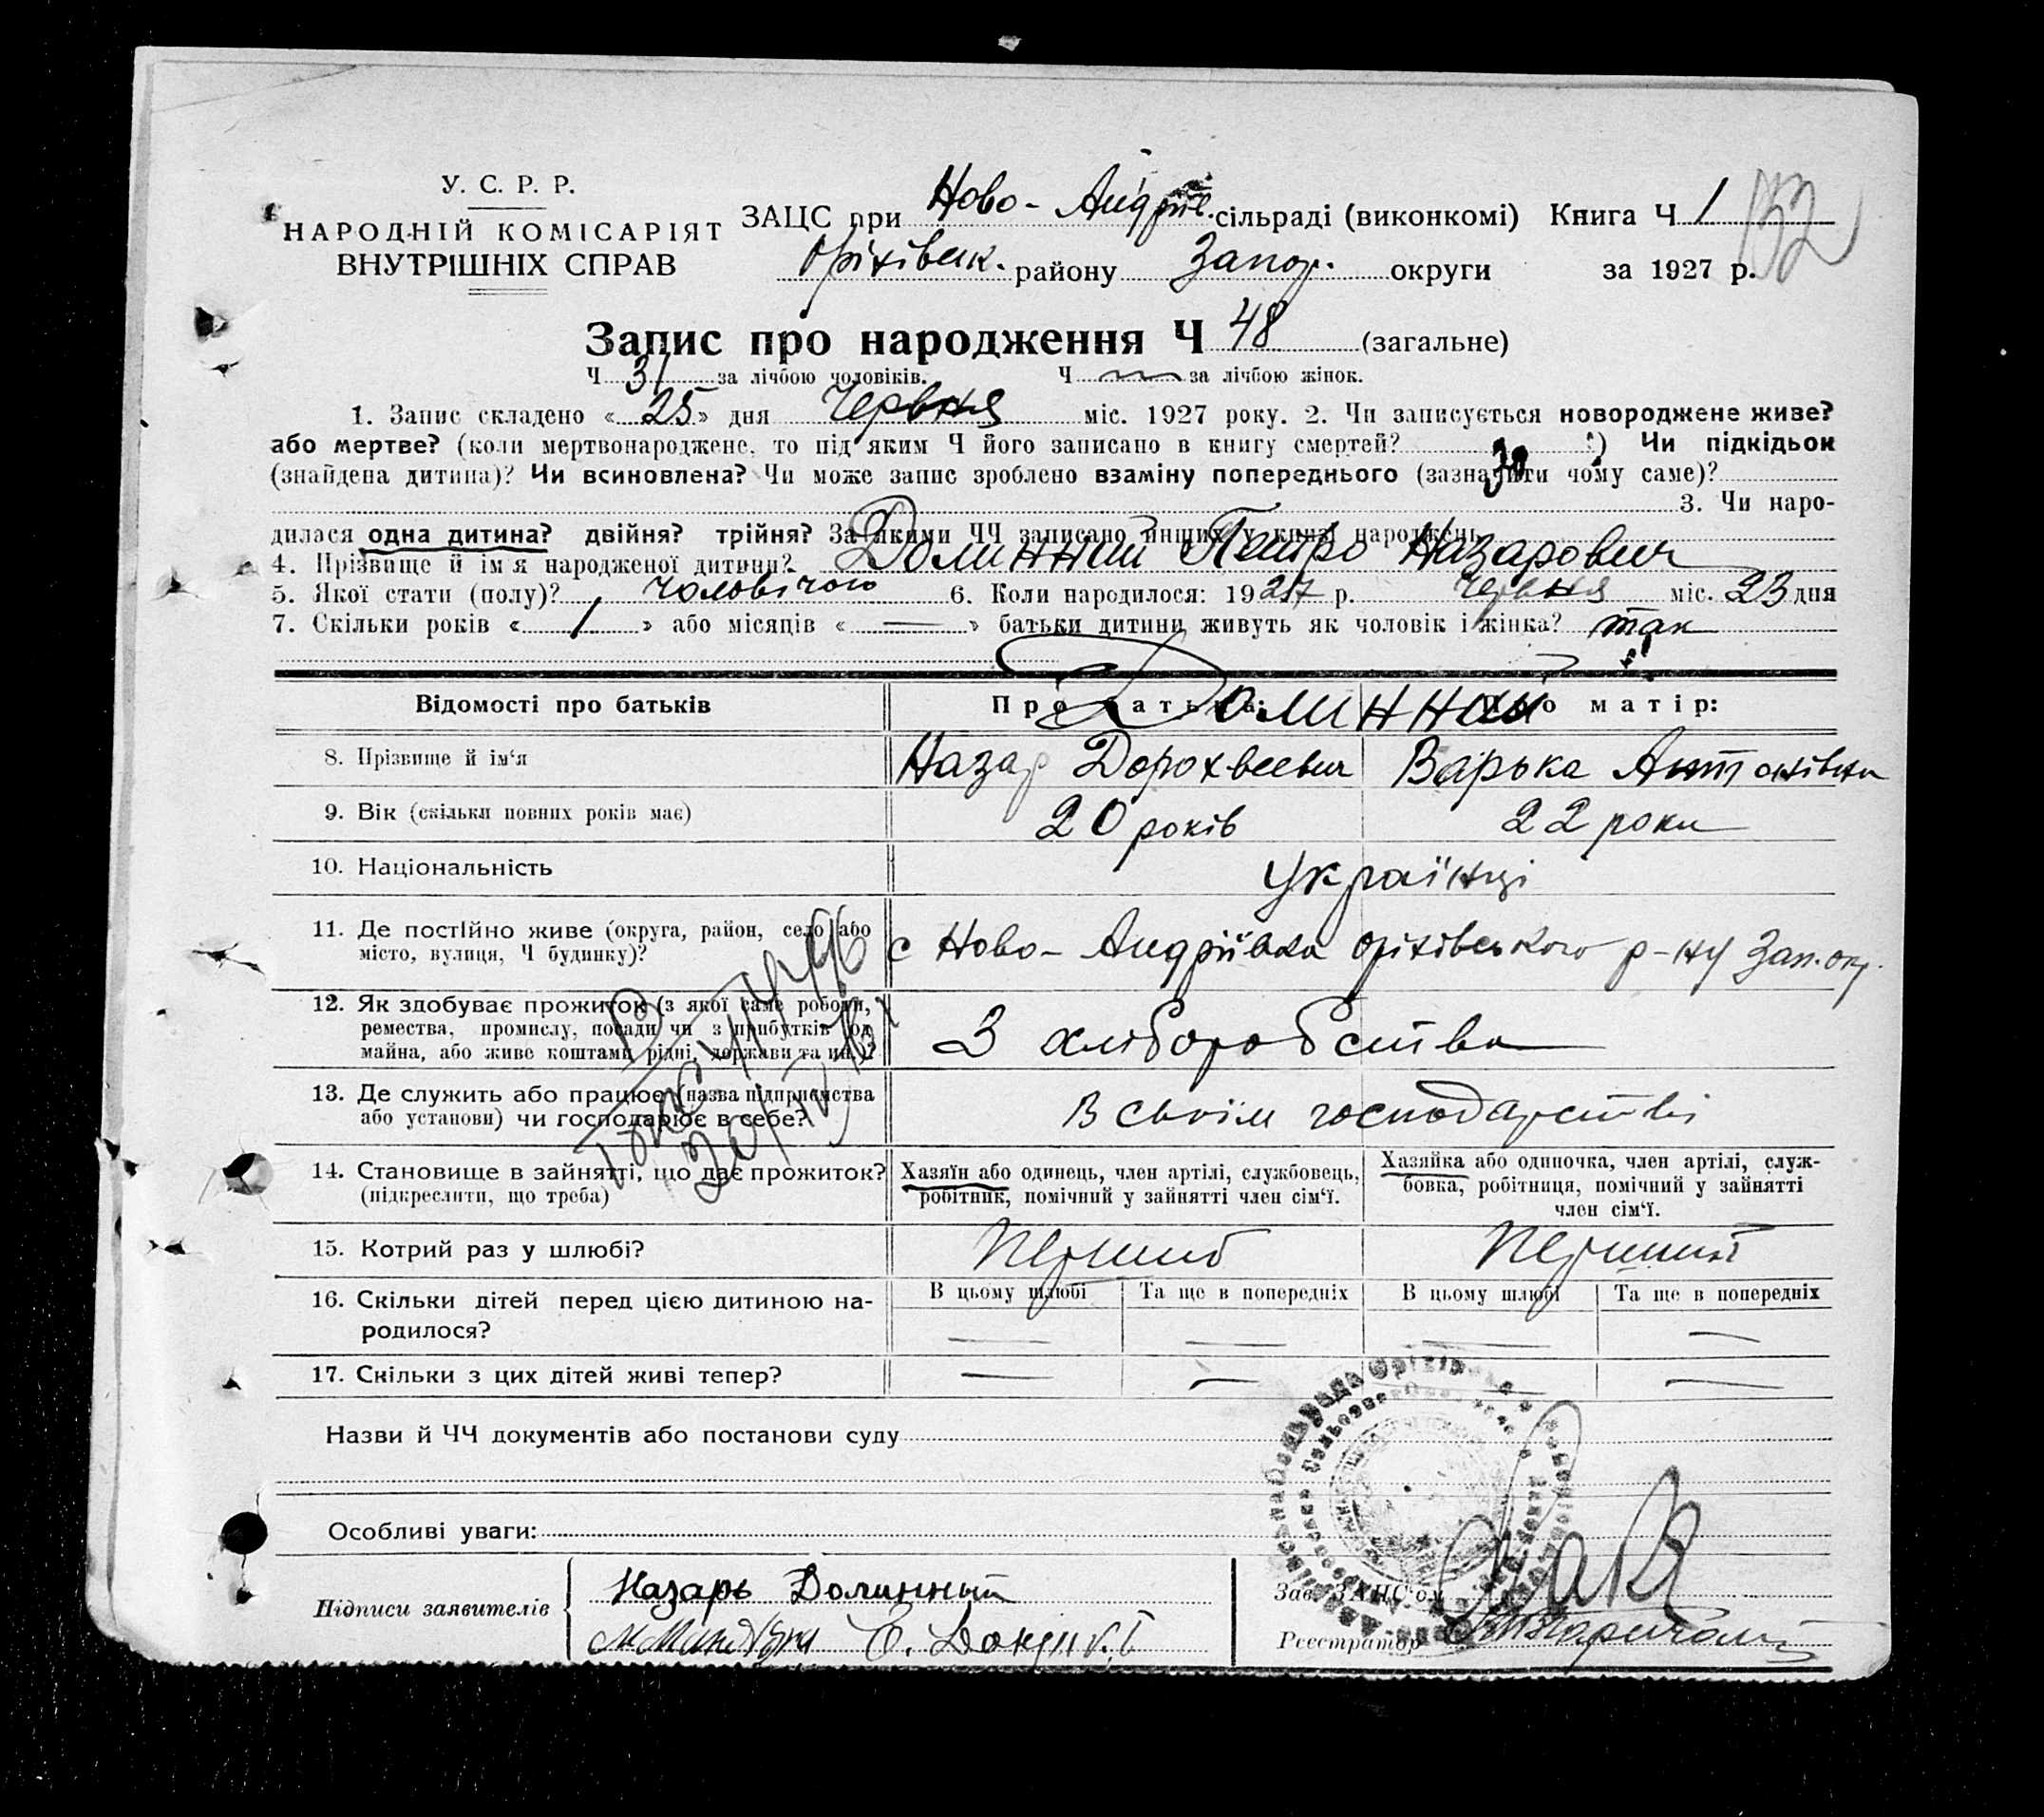 У. С. Р. Р.
НАРОДНІЙ КОМІСАРІЯТ
ВНУТРІШНІХ СПРАВ
ЗАЦС при Ново-Андрії. сільраді (виконкомі) Книга Ч 1
132
Оріхівськ. району Запор. округи за 1927 р.
Запис про народження Ч 48 (загальне)
Ч 31 за лічбою чоловіків. Ч — за лічбою жінок.
1. Запис складено «25» дня Червня міс. 1927 року. 2. Чи записується новороджене живе?
або мертве? (коли мертвонароджене, то під яким Ч його записано в книгу смертей? ) Чи підкідьок
(знайдена дитина)? Чи всиновлена? Чи може запис зроблено взаміну попереднього (зазначити чому саме)?
3. Чи наро-
дилася одна дитина? двійня? трійня? За якими ЧЧ записано инших у книзі народжень
4. Прізвище й ім'я народженої дитини? Долинний Петро Назарович
5. Якої стати (полу)? чоловічою 6. Коли народилося: 1927 р. Червня міс. 23 дня
7. Скільки років «1» або місяців «—» батьки дитини живуть як чоловік і жінка? так
Відомості про батьків Про батька: Про матір:
Долинний
8. Прізвище й ім'я Назар Дорохвеевич Варька Антонівна
9. Вік (скільки повних років має) 20 років 22 роки
10. Національність Українці
11. Де постійно живе (округа, район, село або
місто, вулиця, Ч будинку)? с Ново-Андріївка Оріхівського р-ну Зап. окр.
12. Як здобуває прожиток (з якої саме роботи,
ремества, промислу, посади чи з прибутків од
майна, або живе коштами рідні, держави та ин.)? З хліборобства
13. Де служить або працює (назва підприємства
або установи) чи господарює в себе? В своїм господарстві
14. Становище в зайнятті, що дає прожиток?
(підкреслити, що треба)
Хазяїн або одинець, член артілі, службовець,
робітник, помічний у зайнятті член сім'ї.
Хазяйка або одиночка, член артілі, служ-
бовка, робітниця, помічний у зайнятті
член сім'ї.
15. Котрий раз у шлюбі? Перший Перший
16. Скільки дітей перед цією дитиною на-
родилося?
В цьому шлюбі Та ще в попередніх В цьому шлюбі Та ще в попередніх
— — — —
17. Скільки з цих дітей живі тепер? — — — —
Назви й ЧЧ документів або постанови суду
Особливі уваги:
Підписи заявителів Назарь Долинный
Зав. ЗАЦС'ом
Реєстратор